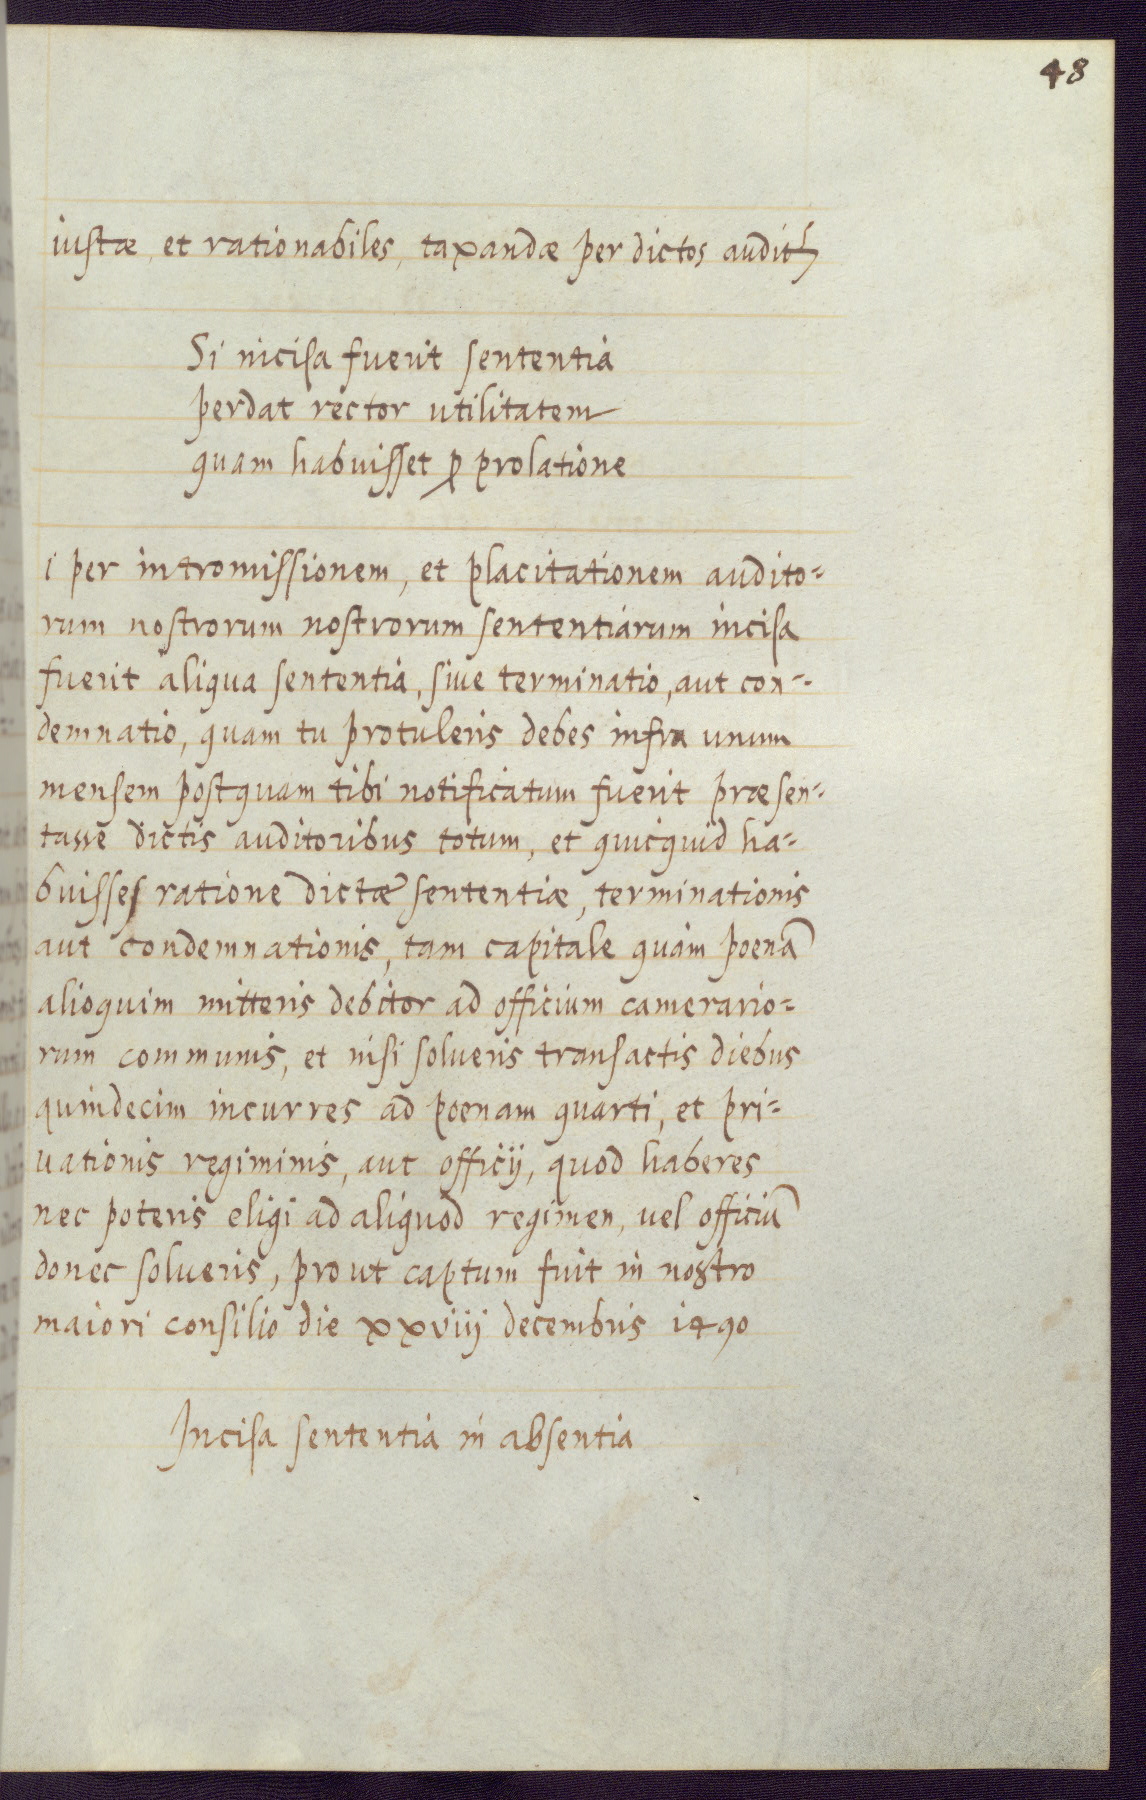 48
iustæ, et rationabiles, taxandæ per dictos audit
Si incisa fuerit sententia
perdat rector utilitatem
quam habuisset p prolatione
i per intromissionem, et placitationem audito-
rum nostrorum nostrorum sententiarum incisa
fuerit aliqua sententia, siue terminatio, aut con-
demnatio, quam tu protuleris debes infra unum
mensem postquam tibi notificatum fuerit præsen-
tasse dictis auditoribus totum, et quicquid ha-
buisses ratione dictæ sententiæ, terminationis
aut condemnationis, tam capitale quam poenā
alioquim mitteris debitor ad officium camerario-
rum communis, et nisi solueris transactis diebus
quindecim incurres ad poenam quarti, et pri-
uationis regiminis, aut officij, quod haberes
nec poteris eligi ad aliquod regimen, uel officiū
donec solueris, prout captum fuit in nostro
maiori consilio die xxviij decembris 1490
Incisa sententia in absentia